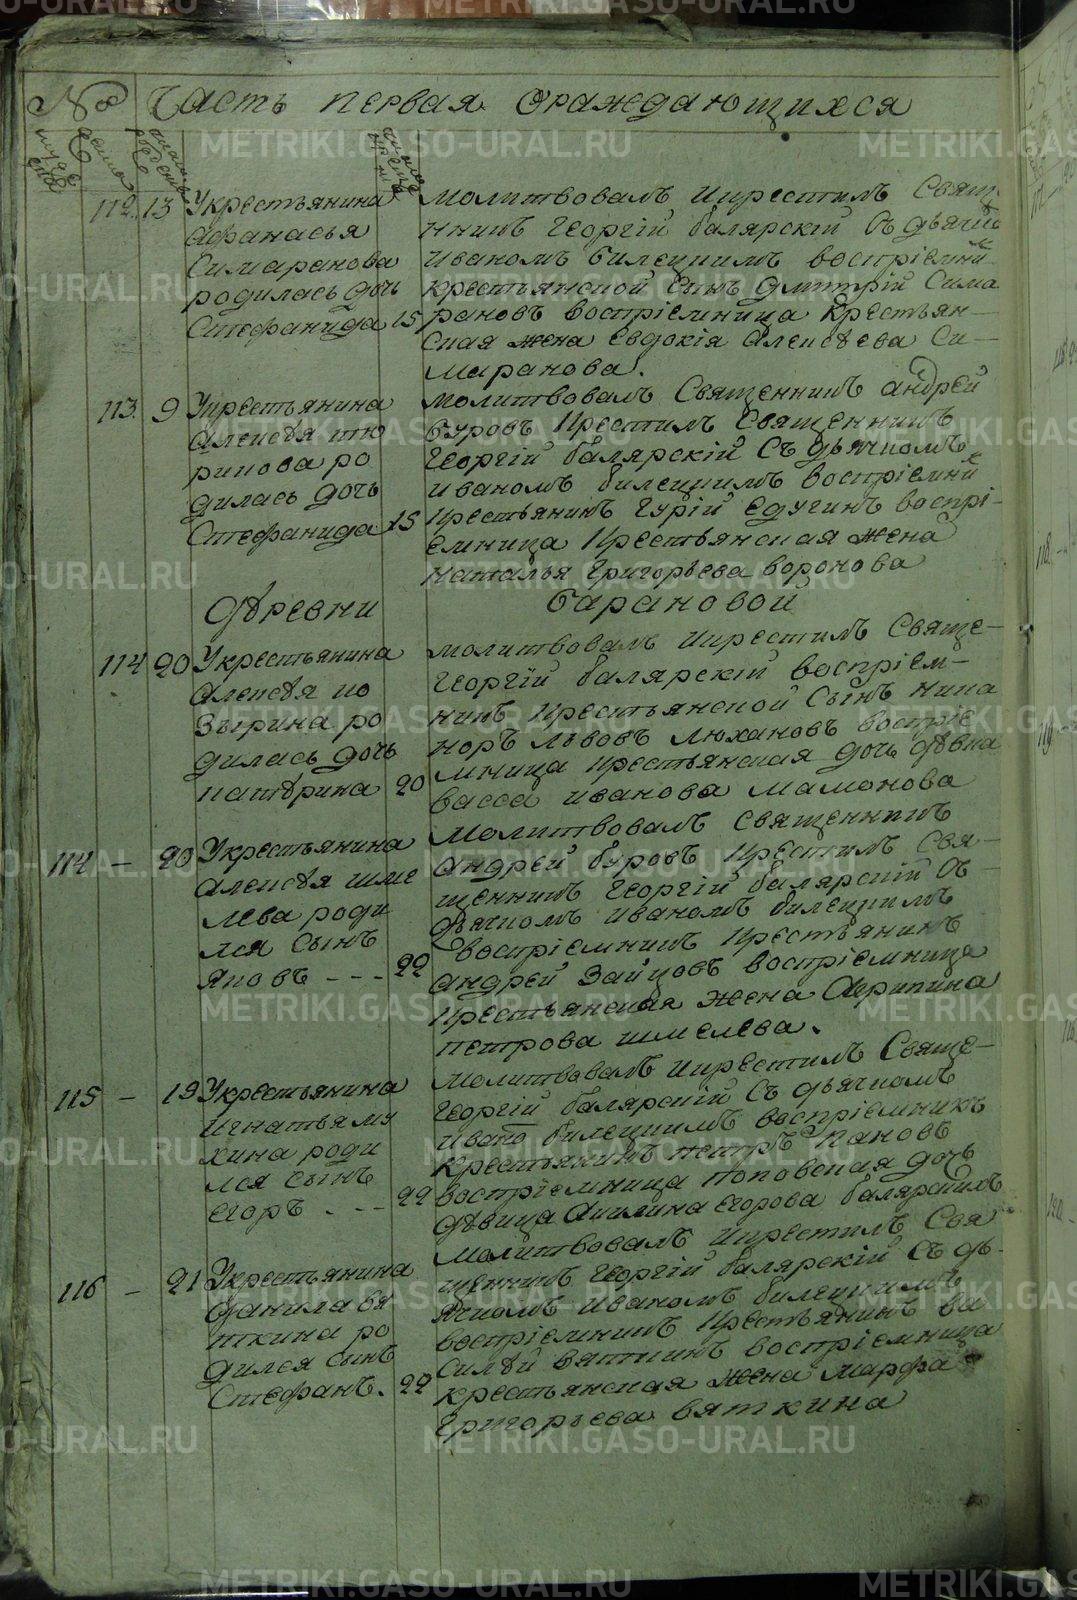 № Часть первая ораждающихся
112. 13 Укрестьянина
Афанасья
Симаранова
родилась дочь
Стефанида 15
молитвовалъ икрестилъ Свящ
нникъ Георгій балярскій Съ дьячко
Иваномъ билецкимъ воспріемни
крестьянской Сынъ Дмитрій Сима
рановъ воспріемница Крестьян—
ская жена Евдокія Алексѣева Си—
маранова.
113. 9 Укрестьянина
Алексѣя тю
рикова ро
дилась дочь
Стефанида 15
молитвовалъ Священникъ андрей
буровъ Крестилъ Священникъ
Георгій балярскій Съ дьячкомъ
иваномъ билецкимъ воспріемни
крестьянинъ Гурій Едугинъ воспрі-
емница Крестьянская жена
наталья Григорьева воронова
Дѣревни барановой
114 20 Укрестьянина
Алексѣя ко
зырина ро
дилась дочь
катѣрина 20
молитвовалъ икрестилъ Свяще—
Георгій балярскій воспріем—
никъ Крестьянской Сынъ ника
норъ львовъ люхановъ воспріе
мница крестьянская дочь дѣвка
васса иванова мамонова
114 — 20 Укрестьянина
Алексѣя шме
лева роди
лся Сынъ
яковъ - - - 22
молитвовалъ священникъ
андрей буровъ крестилъ Свя—
щенникъ Георгій балярскій Съ
дьячкомъ иваномъ билецкимъ
воспріемникъ Крестьянинъ
андрей Зайцовъ воспріемница
Крестьянская жена Акрипина
петрова шмелева.
115 — 19 Укрестьянина
Игнатья му
хина роди
лся сынъ
егоръ . - - 22
молитвовалъ икрестилъ Свяще—
Георгій балярскій Съ дьячкомъ
ивано билецкимъ воспріемникъ
Крестьянинъ петръ пановъ
воспріемница поповская дочь
дѣвица Акилина егорова балярскихъ
116 — 21 Укрестьянина
Данила вя
ткина ро
дился сынъ
Стефанъ. 22
молитвовалъ икрестилъ Свя
щенникъ Георгій балярскій Съ дь-
ячкомъ иваномъ билецкимъ
воспріемникъ крестьянинъ ва
силѣй вяткинъ воспріемница
крестьянская жена марфа
Григорьева вяткина
METRIKI.GASO-URAL.RU